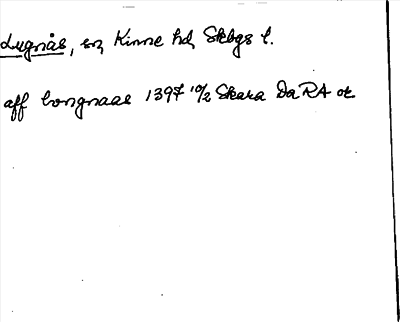 Lugnås, sn, Kinne hd, Skbgs l.
aff longnaas 1397 10/2 Skara Da RA or